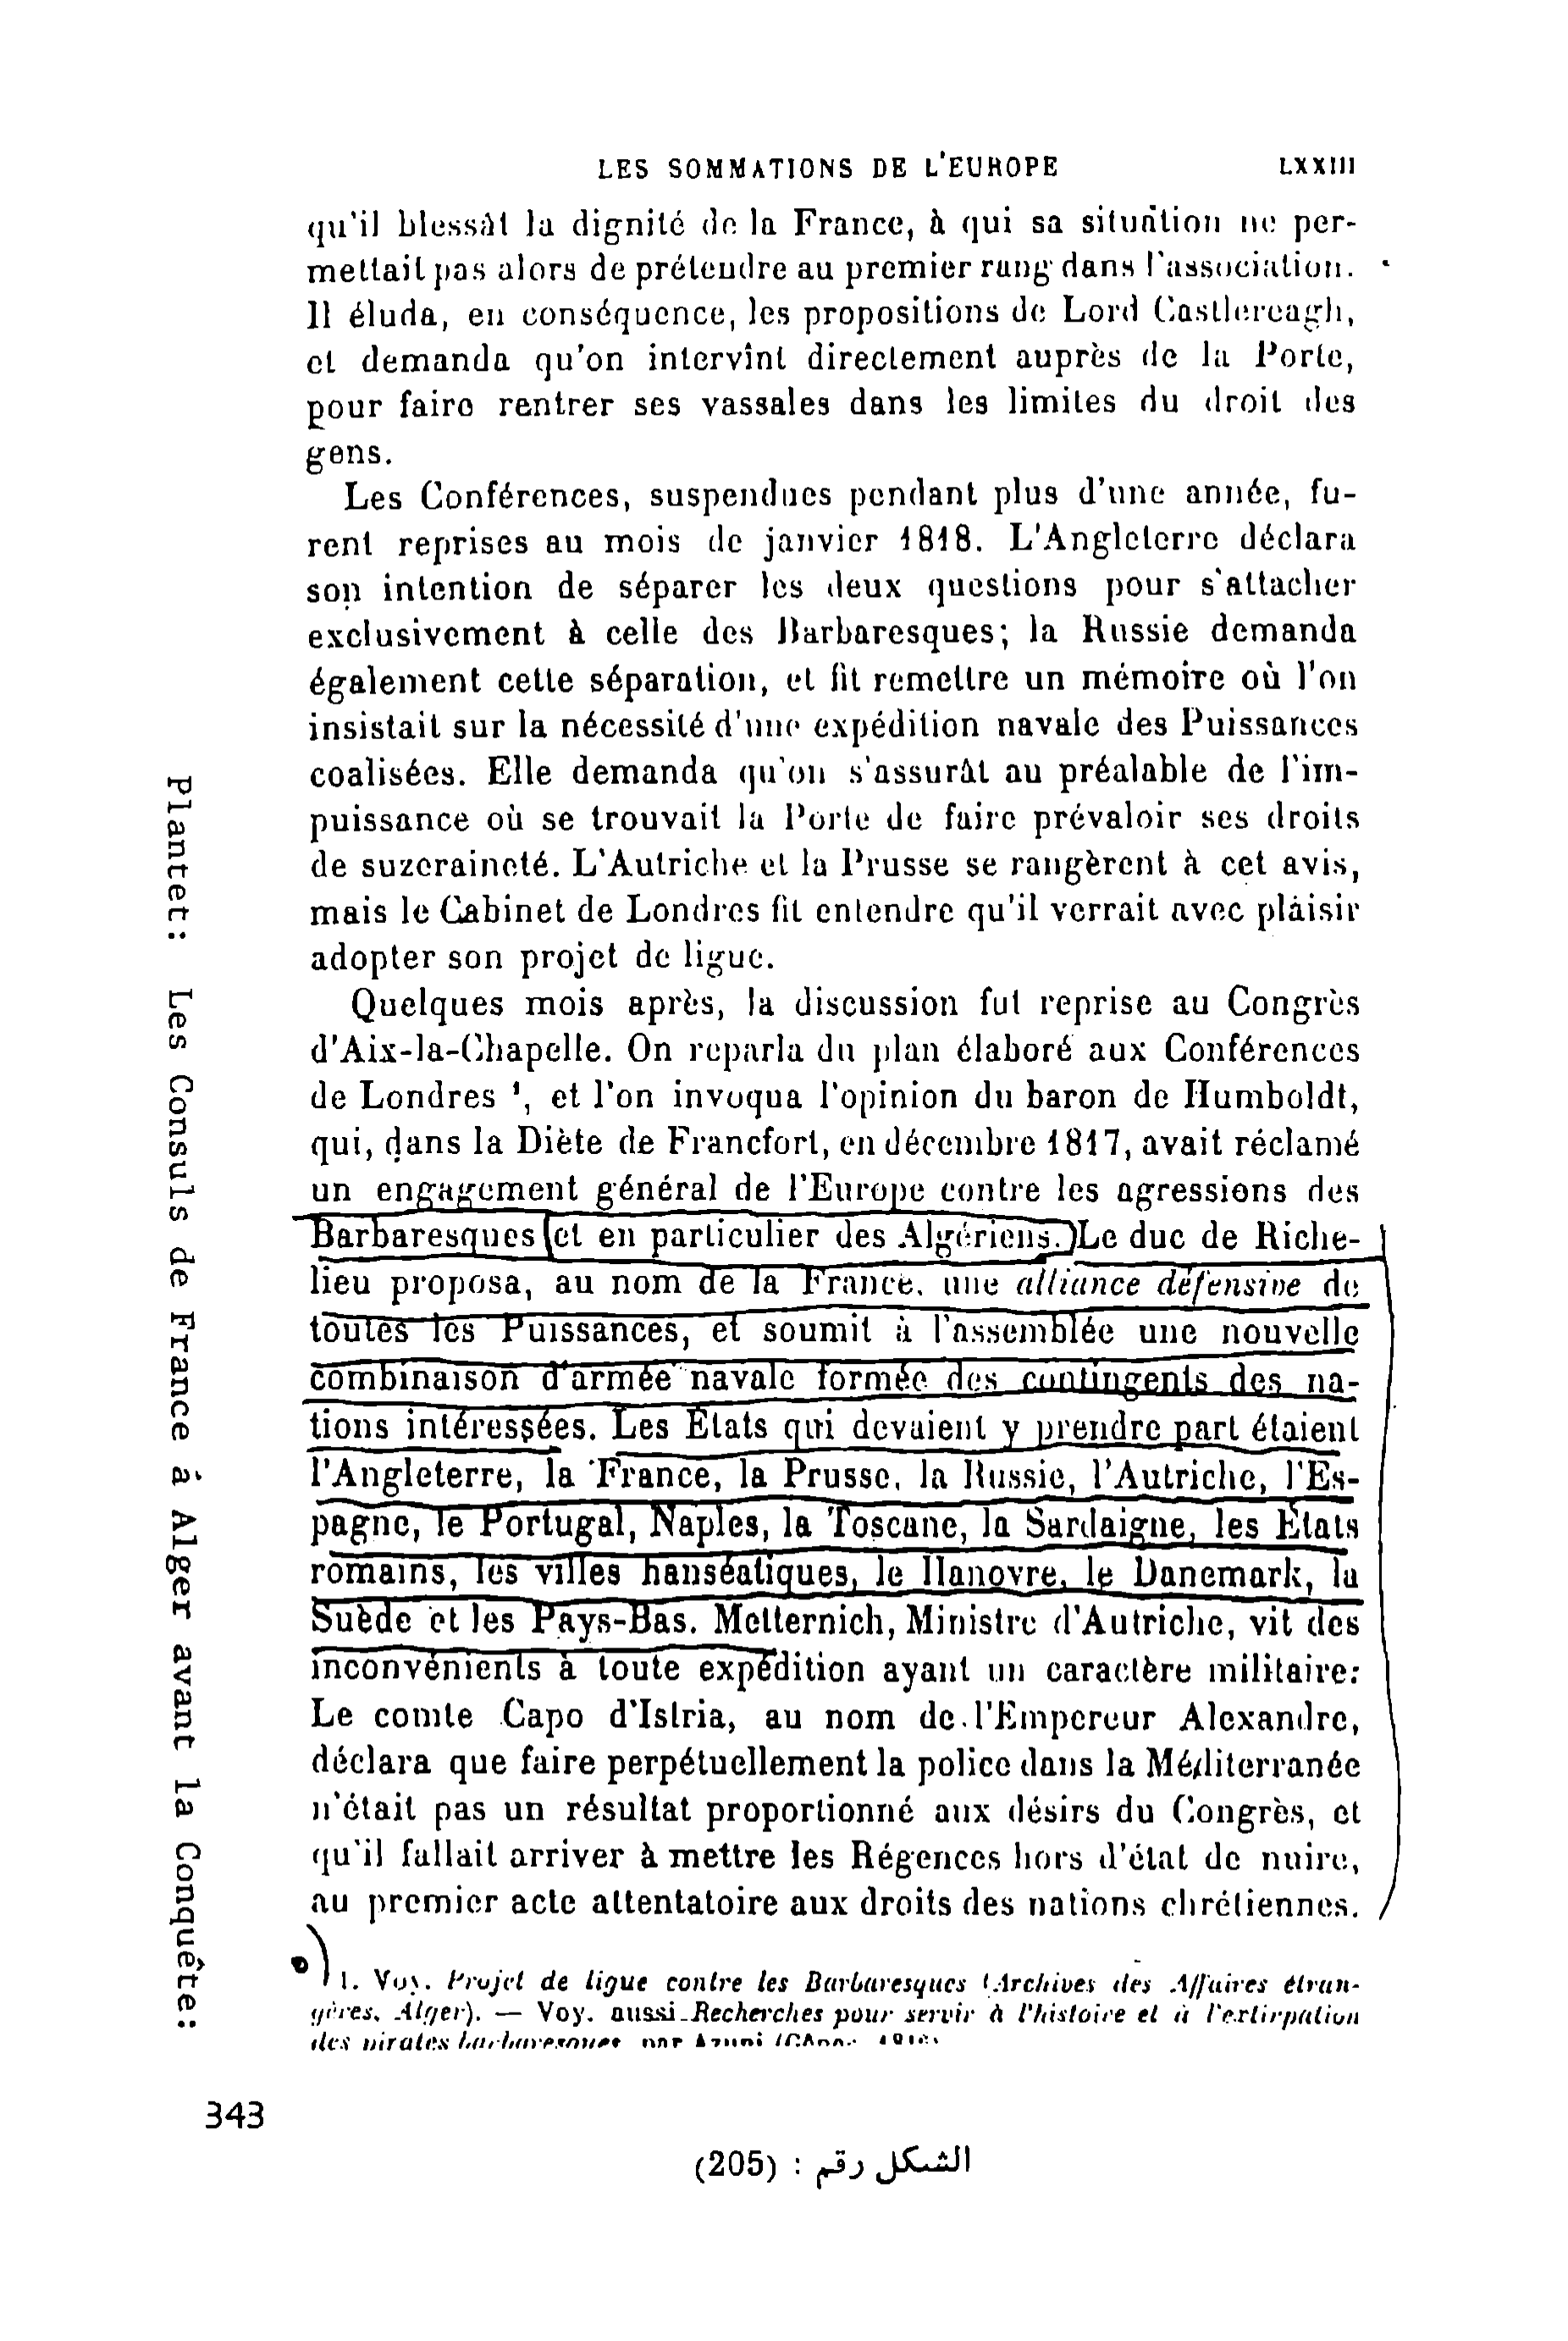 LES SOMMATIONS DE L'EUROPE LXXIII
qu'il blessât la dignité de la France, à qui sa situation ne per-
mettait pas alors de prétendre au premier rang dans l'association.
Il éluda, en conséquence, les propositions de Lord Castlereagh,
et demanda qu'on intervînt directement auprès de la Porte,
pour faire rentrer ses vassales dans les limites du droit des
gens.
Les Conférences, suspendues pendant plus d'une année, fu-
rent reprises au mois de janvier 1818. L'Angleterre déclara
son intention de séparer les deux questions pour s'attacher
exclusivement à celle des Barbaresques; la Russie demanda
également cette séparation, et fit remettre un mémoire où l'on
insistait sur la nécessité d'une expédition navale des Puissances
coalisées. Elle demanda qu'on s'assurât au préalable de l'im-
puissance où se trouvait la Porte de faire prévaloir ses droits
de suzeraineté. L'Autriche et la Prusse se rangèrent à cet avis,
mais le Cabinet de Londres fit entendre qu'il verrait avec plaisir
adopter son projet de ligue.
Quelques mois après, la discussion fut reprise au Congrès
d'Aix-la-Chapelle. On reparla du plan élaboré aux Conférences
de Londres ¹, et l'on invoqua l'opinion du baron de Humboldt,
qui, dans la Diète de Francfort, en décembre 1817, avait réclamé
un engagement général de l'Europe contre les agressions des
Barbaresques (et en particulier des Algériens.) Le duc de Riche-
lieu proposa, au nom de la France, une alliance défensive de
toutes les Puissances, et soumit à l'assemblée une nouvelle
combinaison d'armée navale formée des contingents des na-
tions intéressées. Les États qui devaient y prendre part étaient
l'Angleterre, la France, la Prusse, la Russie, l'Autriche, l'Es-
pagne, le Portugal, Naples, la Toscane, la Sardaigne, les États
romains, les villes hanséatiques, le Hanovre, le Danemark, la
Suède et les Pays-Bas. Metternich, Ministre d'Autriche, vit des
inconvénients à toute expédition ayant un caractère militaire:
Le comte Capo d'Istria, au nom de l'Empereur Alexandre,
déclara que faire perpétuellement la police dans la Méditerranée
n'était pas un résultat proportionné aux désirs du Congrès, et
qu'il fallait arriver à mettre les Régences hors d'état de nuire,
au premier acte attentatoire aux droits des nations chrétiennes.
1. Voy. Projet de ligue contre les Barbaresques (Archives des Affaires étran-
gères, Alger). — Voy. aussi Recherches pour servir à l'histoire et à l'extirpation
des pirates barbaresques par Azuni
Plantet: Les Consuls de France à Alger avant la Conquête:
343
الشكل رقم : (205)